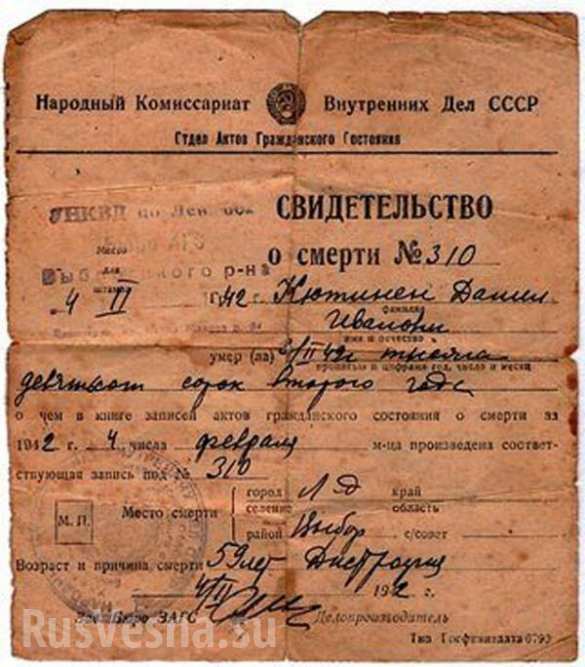 Народный Комиссариат Внутренних Дел СССР
Отдел Актов Гражданского Состояния
УНКВД по Лен. обл.
СВИДЕТЕЛЬСТВО
Место
для
о смерти № 310
р-на
4 II 42 г.
Кютинен Данил
фамилия
Иванович
имя и отчество
умер (ла)
прописью и цифрами год, число и месяц
девятьсот сорок второго года
о чем в книге записей актов гражданского состояния о смерти за
1942 г. 4 числа февраля м-ца произведена соответ-
ствующая запись под № 310
Место смерти
город Л-д край
селение область
район Выбор с/совет
М. П.
Возраст и причина смерти 59 лет Дистрофия
4/II 1942 г.
Зав. Бюро ЗАГС
Делопроизводитель
Тип. Госфиниздата 6793
RusVesna.su